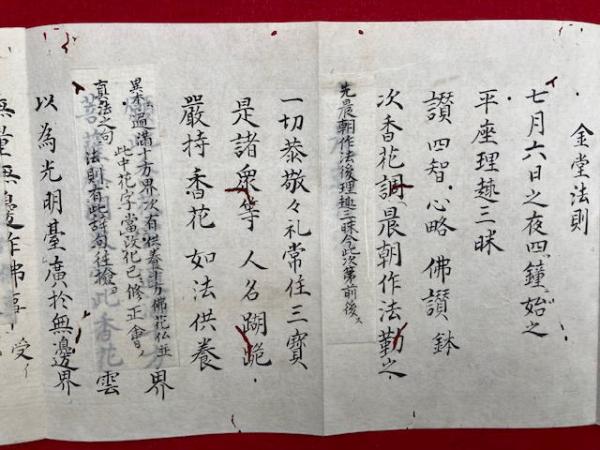 金堂法則
七月六日之夜四鐘始之
平座理趣三昧
讃 四智 心略 佛讃 鉢
次香花調晨朝作法勤之
先晨朝作法後理趣三昧今此次第前後ス
一切恭敬々礼常住三寶
是諸衆等 人名𦙶跪
嚴持香花 如法供養
界
異本遍満十方界次有供養十方佛花仏並
此中花字當改化已修正會ノ
真法之向
法則有此詩句往撿
此香花雲
以為光明臺廣於無邊界
無量無邊作佛事 受